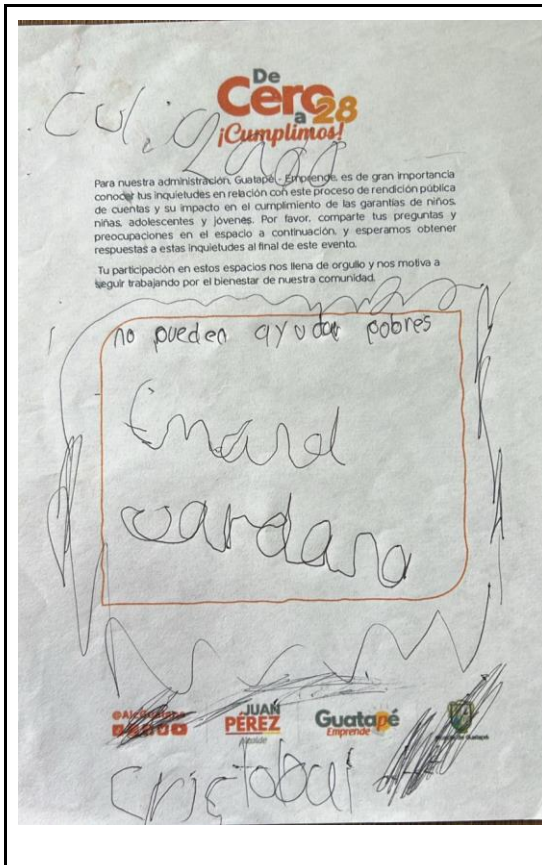 De
Cero
a 28
¡Cumplimos!
Para nuestra administración, Guatapé - Emprende, es de gran importancia
conocer tus inquietudes en relación con este proceso de rendición pública
de cuentas y su impacto en el cumplimiento de las garantías de niños,
niñas, adolescentes y jóvenes. Por favor, comparte tus preguntas y
preocupaciones en el espacio a continuación, y esperamos obtener
respuestas a estas inquietudes al final de este evento.
Tu participación en estos espacios nos llena de orgullo y nos motiva a
seguir trabajando por el bienestar de nuestra comunidad.
no pueden ayudar pobres
JUAN
PÉREZ
Alcalde
Guatapé
Emprende
Cristobal